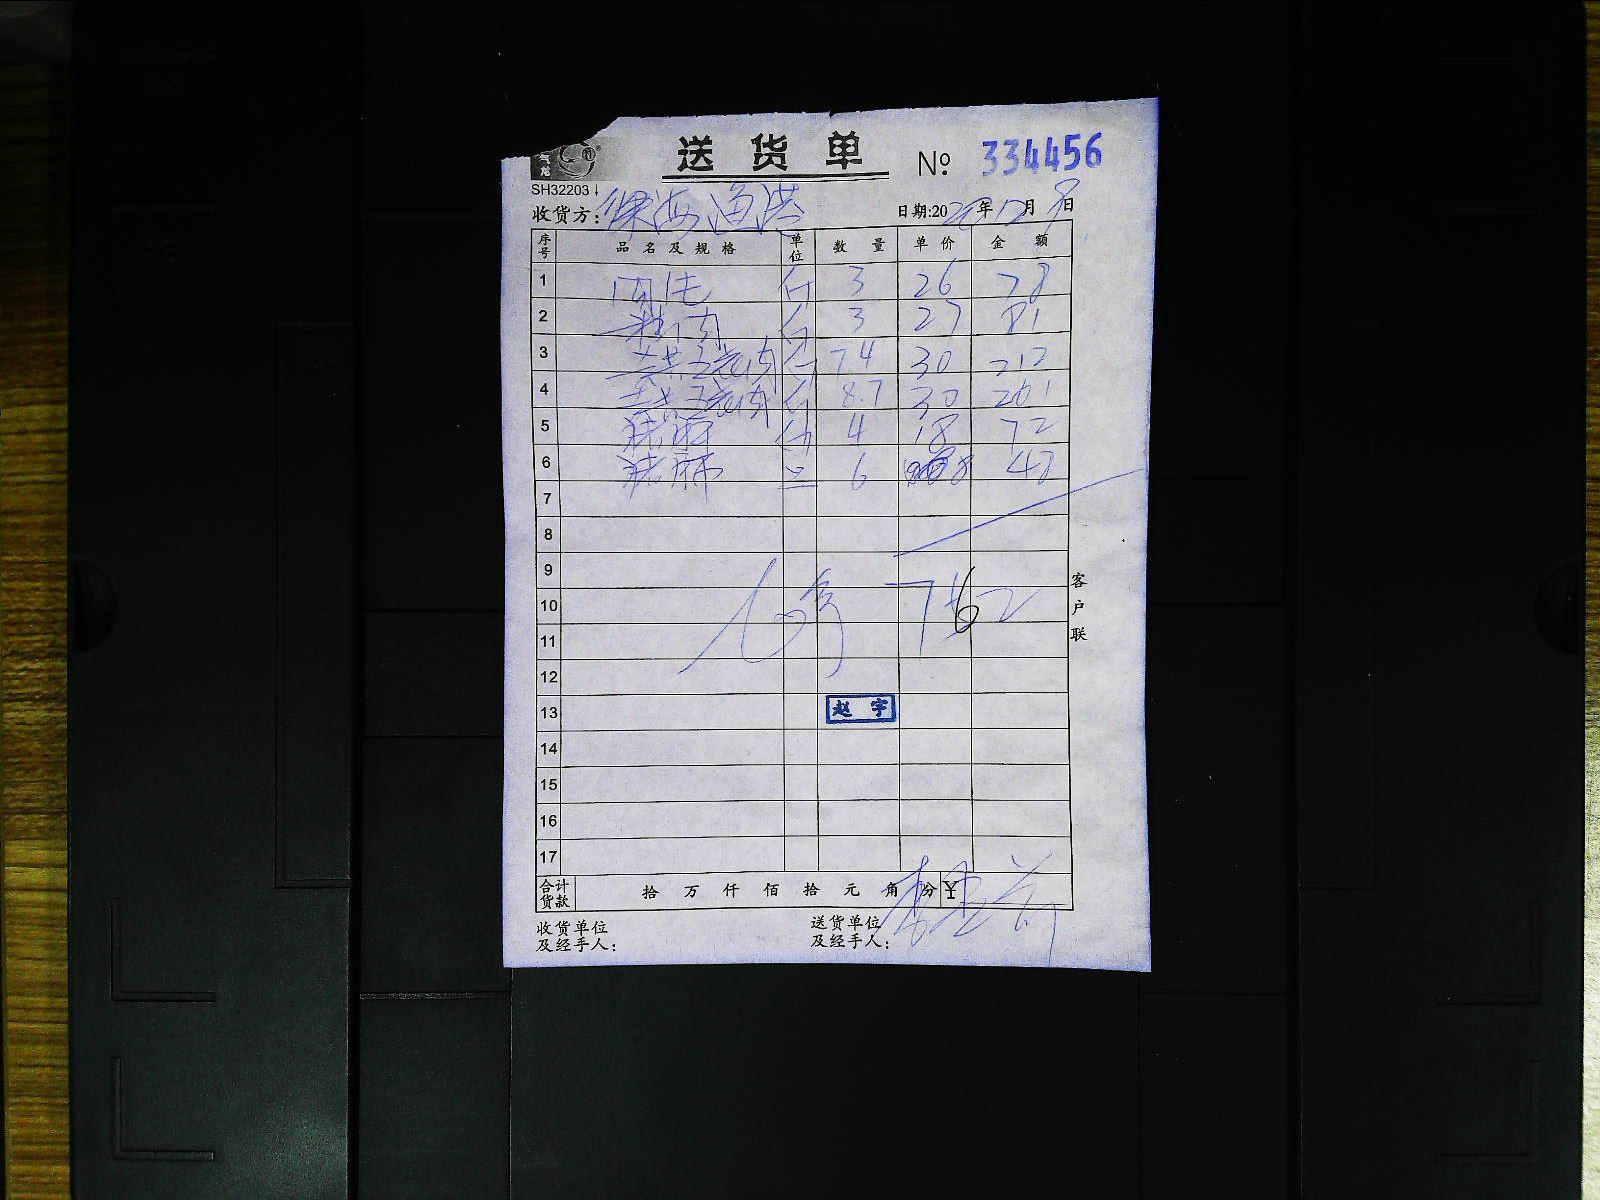 送货单 № 334456
SH32203
收货方: 渔港 日期:20 年12月8日
序号 品名及规格 单位 数量 单价 金额
1 肉 斤 3 26 78
2 精肉 斤 3 27 81
3 五花肉 斤 7.4 30 212
4 五花肉 斤 8.7 30 261
5 猪 4 18 72
6 猪 6 8 48
7
8
9
10 762
11
12
13 赵宇
14
15
16
17
客户联
合计货款 拾 万 仟 佰 拾 元 角 分 ¥
收货单位及经手人: 送货单位及经手人: